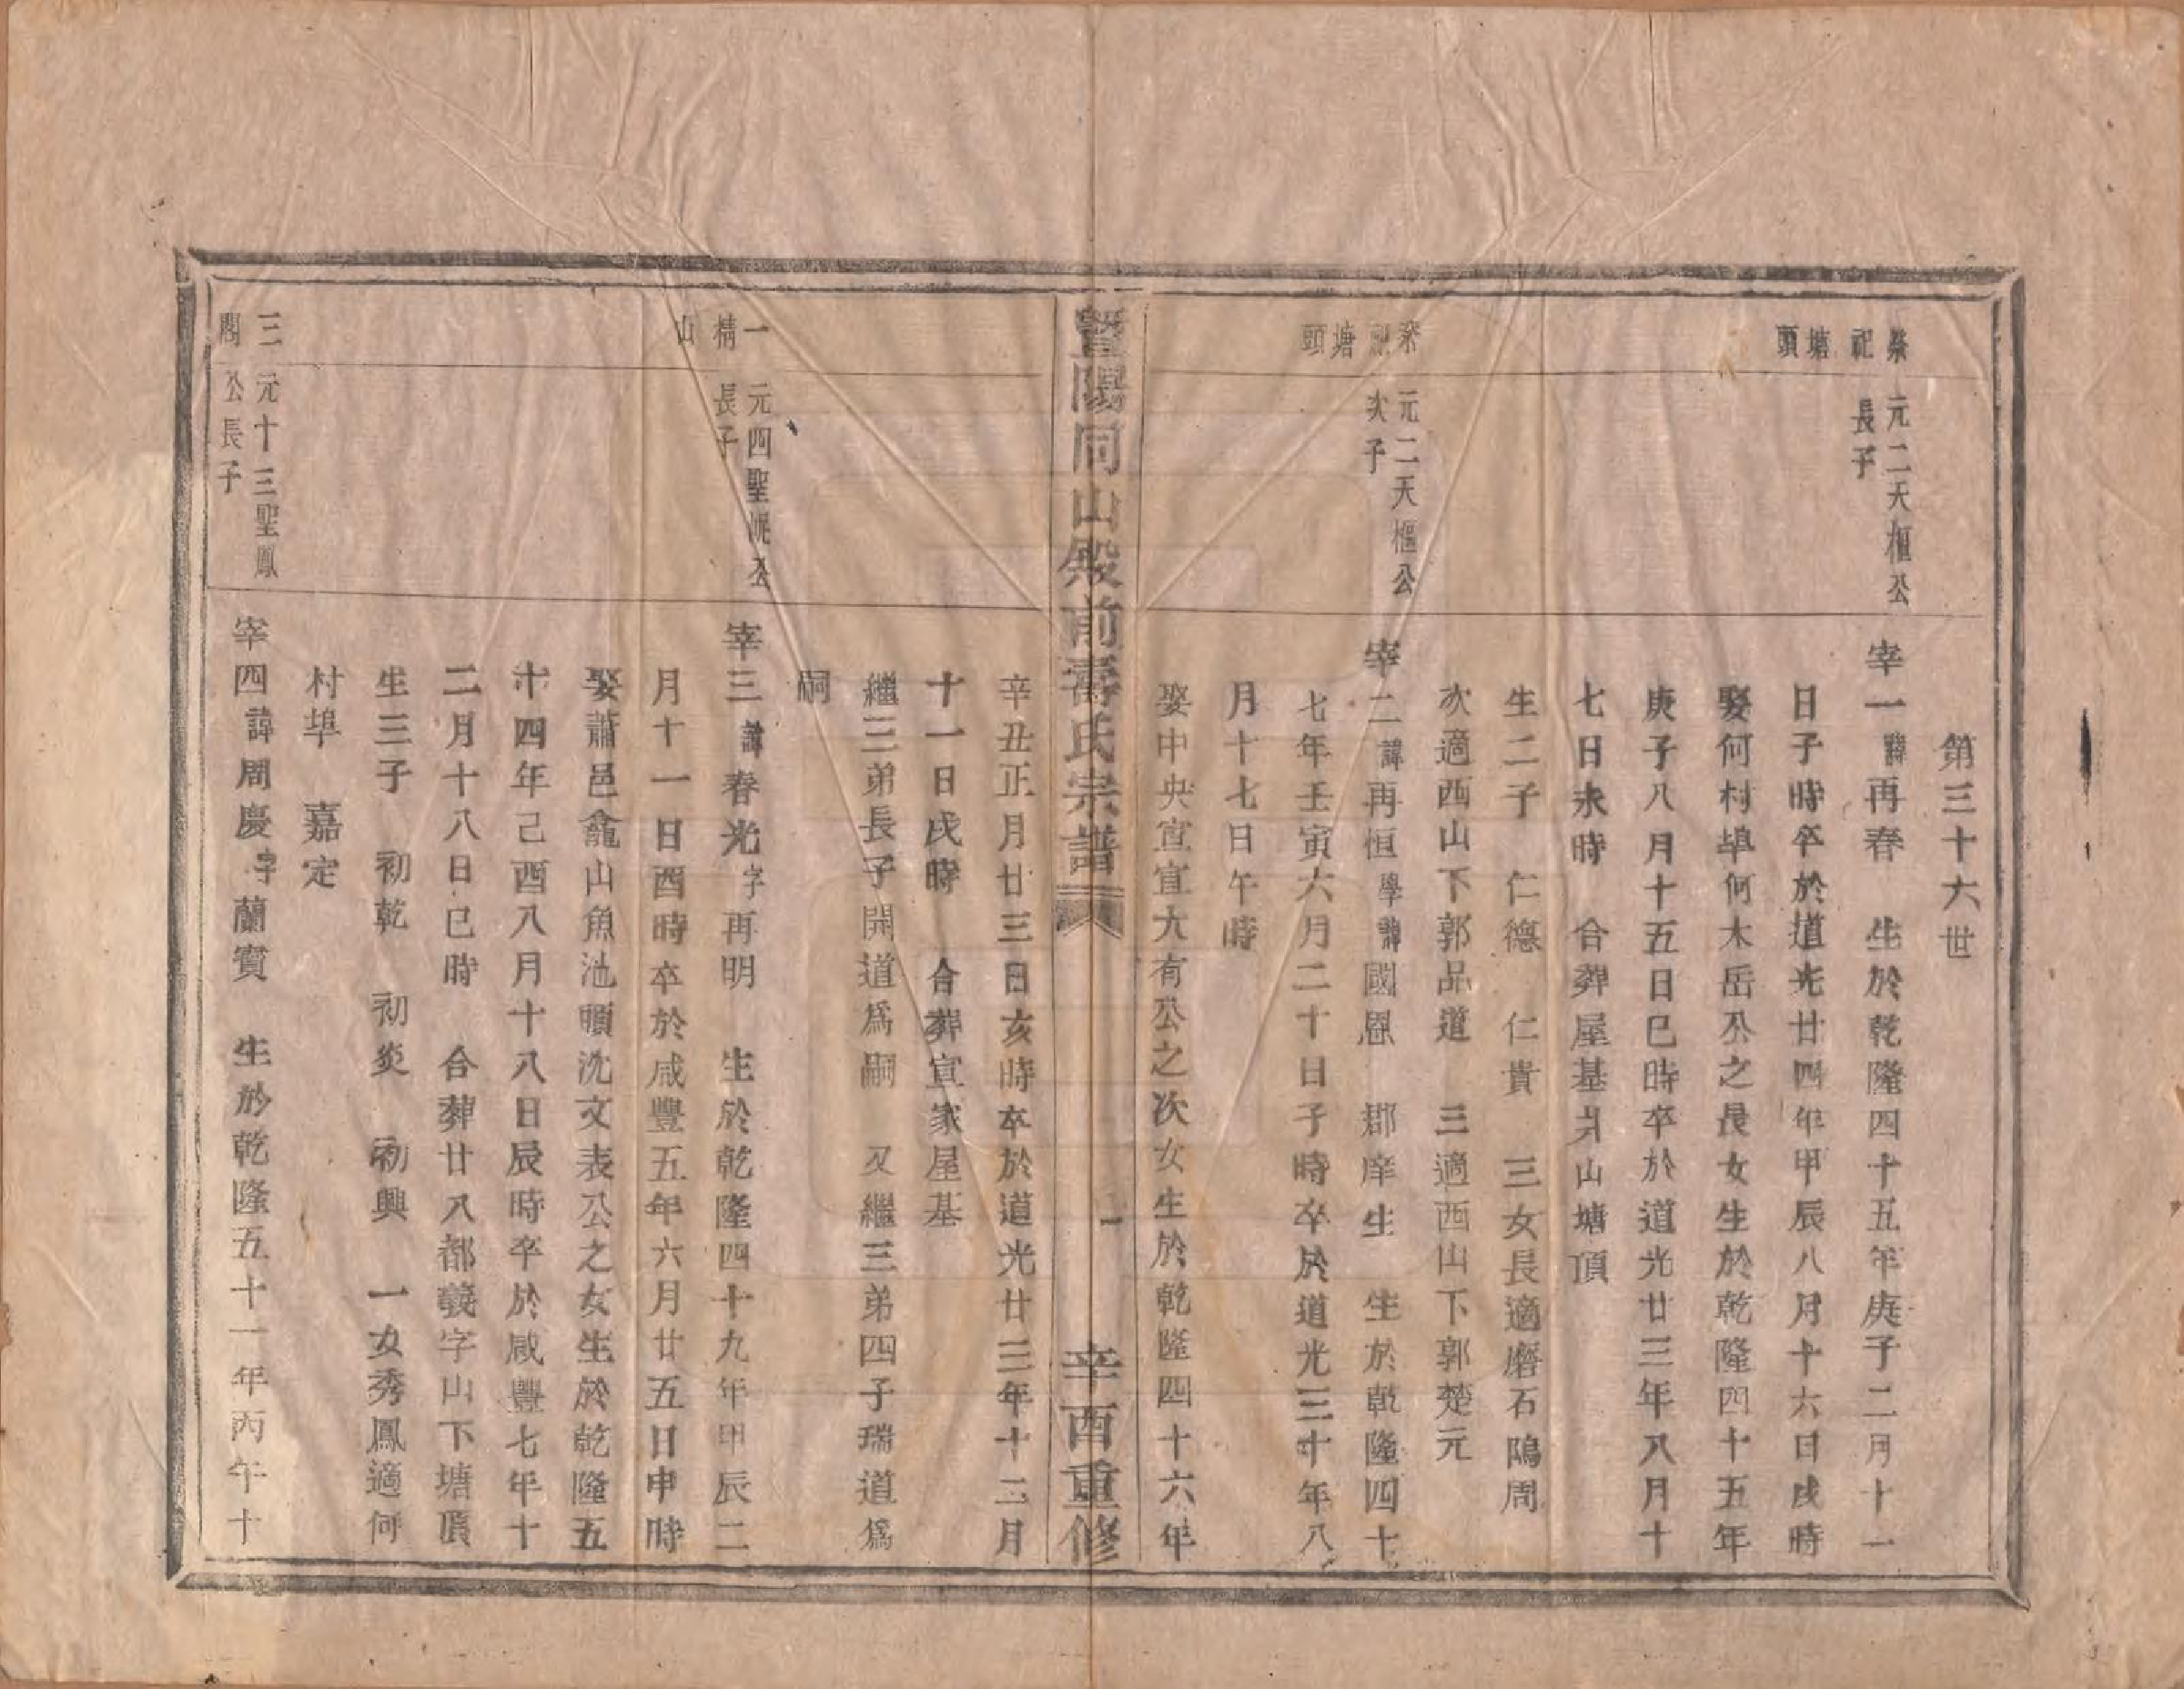 第三十六世
祭祀塘頭
元二天樞公
長子
宰一諱再春　生於乾隆四十五年庚子二月十一
日子時卒於道光廿四年甲辰八月十六日戌時
娶何村埠何木岳公之長女生於乾隆四十五年
庚子八月十五日巳時卒於道光廿三年八月十
七日未時　合葬屋基爿山塘頂
生二子　仁德　仁貴　三女長適磨石隝周
次適西山下郭品道　三適西山下郭楚元
祭祀塘頭
元二天樞公
次子
宰二諱再恒學諱國恩　郡庠生　生於乾隆四十
七年壬寅六月二十日子時卒於道光三十年八
月十七日午時
娶中央宣宣大有公之次女生於乾隆四十六年
暨陽同山殿前壽氏宗譜
一
辛酉重修
辛丑正月廿三日亥時卒於道光廿三年十二月
十一日戌時　合葬宣家屋基
繼三弟長子開道爲嗣　又繼三弟四子瑞道爲
嗣
一精山
元四聖悅公
長子
宰三諱春光字再明　生於乾隆四十九年甲辰二
月十一日酉時卒於咸豐五年六月廿五日申時
娶蕭邑龕山魚池頭沈文表公之女生於乾隆五
十四年己酉八月十八日辰時卒於咸豐七年十
二月十八日巳時　合葬廿八都義字山下塘頂
生三子　初乾　初炎　初興　一女秀鳳適何
村埠　嘉定
三閣
元十三聖鳳
公長子
宰四諱周慶字蘭實　生於乾隆五十一年丙午十